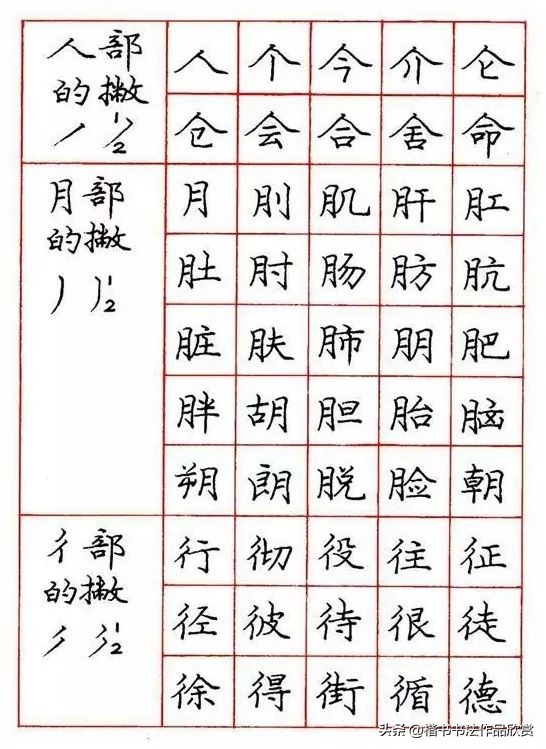 人部
的撇
丿 1/2
人 个 今 介 仑
仓 会 合 舍 命
月部
的撇
丿 1/2
月 刖 肌 肝 肛
肚 肘 肠 肪 肮
脏 肤 肺 朋 肥
胖 胡 胆 胎 脑
朔 朗 脱 脸 朝
彳部
的撇
1/2
行 彻 役 往 征
径 彼 待 很 徒
徐 得 街 循 德
头条 @楷书书法作品欣赏